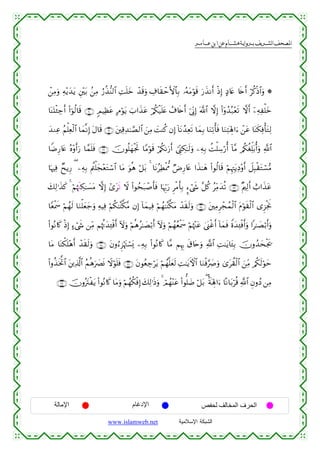 المصحف الشريف برواية هشام عن ابن عامر
۞ وَٱذْكُرْ أَخَا عَادٍ إِذْ أَنذَرَ قَوْمَهُۥ بِٱلْأَحْقَافِ وَقَدْ خَلَتِ ٱلنُّذُرُ مِنۢ بَيْنِ يَدَيْهِ وَمِنْ
خَلْفِهِۦٓ أَلَّا تَعْبُدُوٓا۟ إِلَّا ٱللَّهَ إِنِّىٓ أَخَافُ عَلَيْكُمْ عَذَابَ يَوْمٍ عَظِيمٍ قَالُوٓا۟ أَجِئْتَنَا
لِتَأْفِكَنَا عَنْ ءَالِهَتِنَا فَأْتِنَا بِمَا تَعِدُنَآ إِن كُنتَ مِنَ ٱلصَّٰدِقِينَ قَالَ إِنَّمَا ٱلْعِلْمُ عِندَ
ٱللَّهِ وَأُبَلِّغُكُم مَّآ أُرْسِلْتُ بِهِۦ وَلَٰكِنِّىٓ أَرَىٰكُمْ قَوْمًا تَجْهَلُونَ فَلَمَّا رَأَوْهُ عَارِضًا
مُّسْتَقْبِلَ أَوْدِيَتِهِمْ قَالُوا۟ هَٰذَا عَارِضٌ مُّمْطِرُنَا ۚ بَلْ هُوَ مَا ٱسْتَعْجَلْتُم بِهِۦ ۖ رِيحٌ فِيهَا
عَذَابٌ أَلِيمٌ تُدَمِّرُ كُلَّ شَىْءٍۭ بِأَمْرِ رَبِّهَا فَأَصْبَحُوا۟ لَا تَرَىٰٓ إِلَّا مَسَٰكِنَهُمْ ۚ كَذَٰلِكَ
نَجْزِى ٱلْقَوْمَ ٱلْمُجْرِمِينَ وَلَقَدْ مَكَّنَّٰهُمْ فِيمَآ إِن مَّكَّنَّٰكُمْ فِيهِ وَجَعَلْنَا لَهُمْ سَمْعًا
وَأَبْصَٰرًا وَأَفْـِٔدَةً فَمَآ أَغْنَىٰ عَنْهُمْ سَمْعُهُمْ وَلَآ أَبْصَٰرُهُمْ وَلَآ أَفْـِٔدَتُهُم مِّن شَىْءٍ إِذْ كَانُوا۟
يَجْحَدُونَ بِـَٔايَٰتِ ٱللَّهِ وَحَاقَ بِهِم مَّا كَانُوا۟ بِهِۦ يَسْتَهْزِءُونَ وَلَقَدْ أَهْلَكْنَا مَا
حَوْلَكُم مِّنَ ٱلْقُرَىٰ وَصَرَّفْنَا ٱلْـَٔايَٰتِ لَعَلَّهُمْ يَرْجِعُونَ فَلَوْلَا نَصَرَهُمُ ٱلَّذِينَ ٱتَّخَذُوا۟
مِن دُونِ ٱللَّهِ قُرْبَانًا ءَالِهَةًۢ ۖ بَلْ ضَلُّوا۟ عَنْهُمْ ۚ وَذَٰلِكَ إِفْكُهُمْ وَمَا كَانُوا۟ يَفْتَرُونَ
الحرف المخالف لحفص الإدغام الإمالة
الشبكة الإسلامية www.islamweb.net